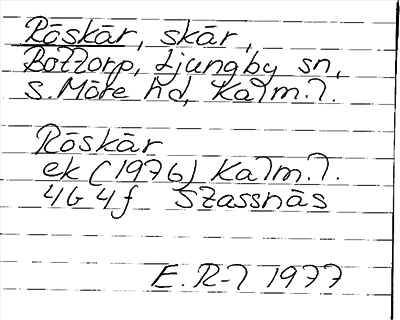 Röskär, skär,
Bottorp, Ljungby sn,
S. Möre hd, Kalm. l.
Röskär
ek (1976) Kalm. l.
4G 4f Stassnäs
E. R-l 1977